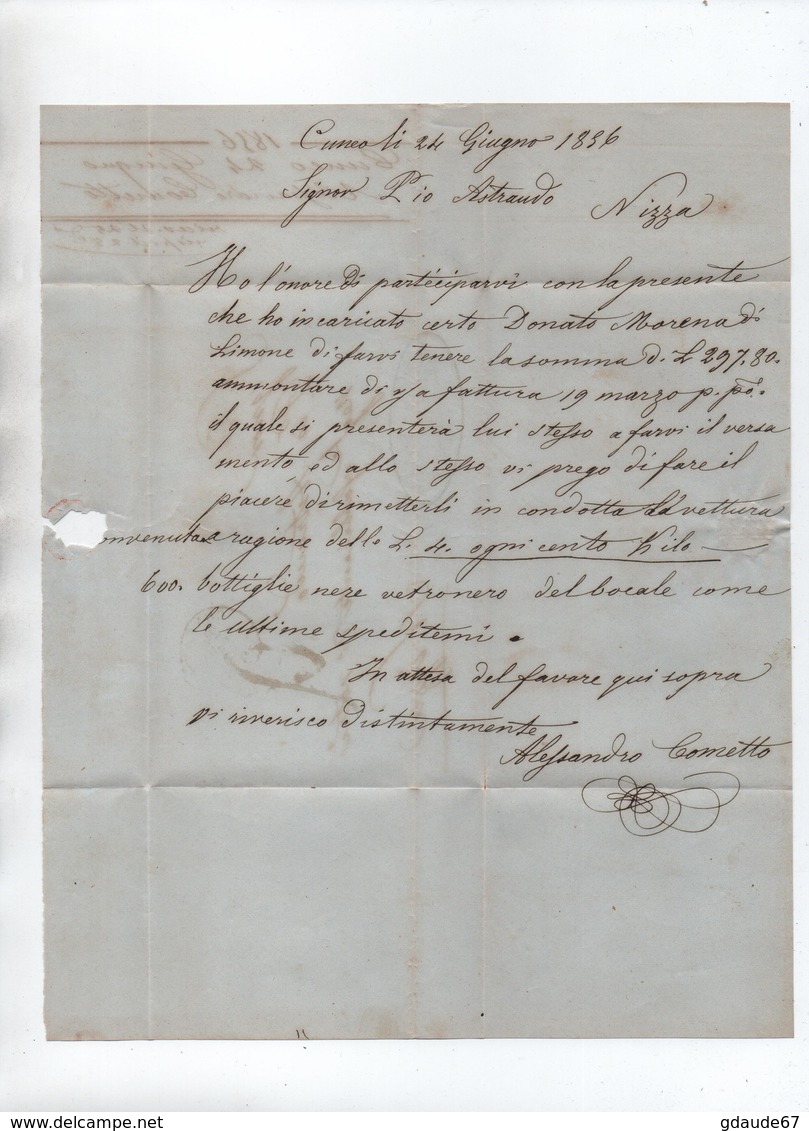 Cuneo li 24 Giugno 1856
Signor Pio Astraudo
Nizza
Ho l'onore di parteciparvi con la presente
che ho incaricato certo Donato Morena di
Limone di farvi tenere la somma di L 297.80.
ammontare di v/a fattura 19 marzo p. pº.
il quale si presenterà lui stesso a farvi il versa
mento ed allo stesso vi prego di fare il
piacere di rimetterli in condotta da vettura
convenuta a ragione delle L. 4. ogni cento Kilo
600. bottiglie nere vetronero del bocale come
le ultime speditemi.
In attesa del favore qui sopra
vi riverisco distintamente
Alessandro Cometto
1856
Cuneo 24 Giugno
Cometto
www.delcampe.net
gdaude67